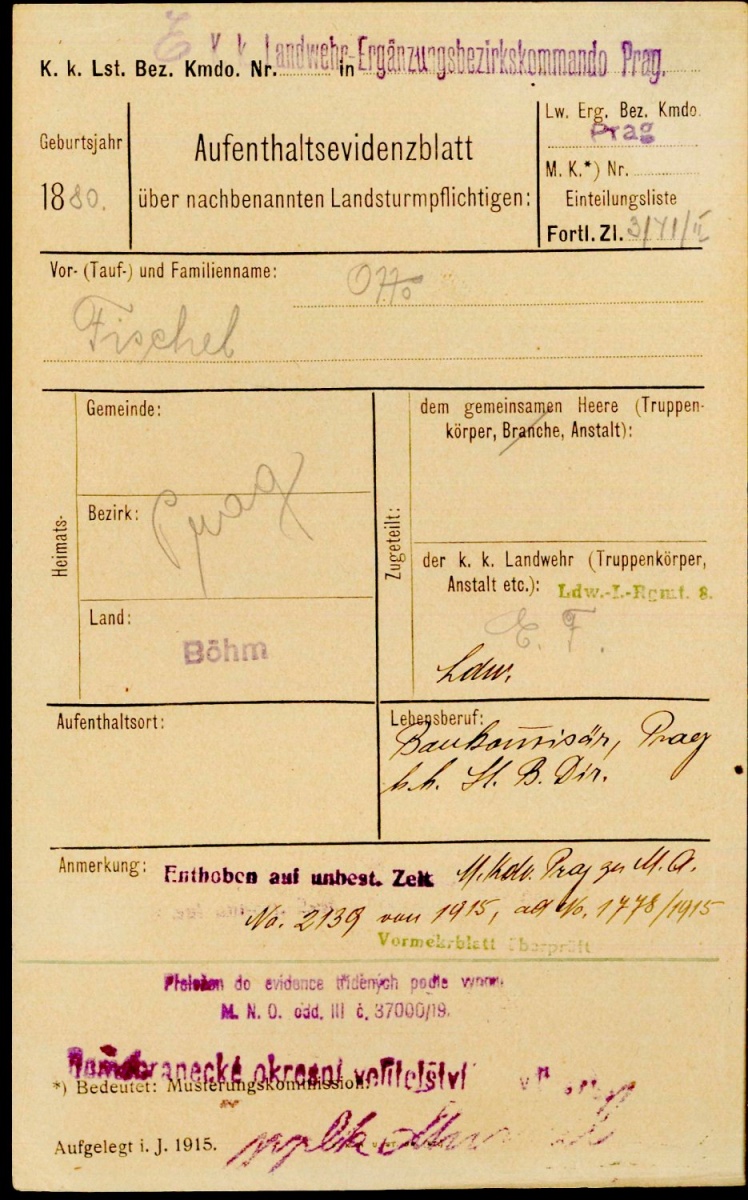 E K. k. Landwehr-Ergänzungsbezirkskommando Prag.
K. k. Lst. Bez. Kmdo. Nr. in
Geburtsjahr
1880.
Aufenthaltsevidenzblatt
über nachbenannten Landsturmpflichtigen:
Lw. Erg. Bez. Kmdo.
Prag
M. K.*) Nr.
Einteilungsliste
Fortl. Zl.
Vor- (Tauf-) und Familienname: Otto
Fischel
Heimats-
Gemeinde:
Bezirk: Prag
Land:
Böhm
Zugeteilt:
dem gemeinsamen Heere (Truppen-
körper, Branche, Anstalt):
der k. k. Landwehr (Truppenkörper,
Anstalt etc.): Ldw.-I.-Rgmt. 8.
E. F.
Ldw.
Aufenthaltsort:
Lebensberuf:
Baukommissär, Prag
k.k. St. B. Dir.
Anmerkung: Enthoben auf unbest. Zeit M.Kdo. Prag M. A.
No. 2139 von 1915, ad No. 1778/1915
Vormerkblatt überprüft
Přeložen do evidence tříděných podle vynos.
M. N. O. odd. III č. 37000/19.
okresní velitelství v
*) Bedeutet: Musterungskommission.
Aufgelegt i. J. 1915.